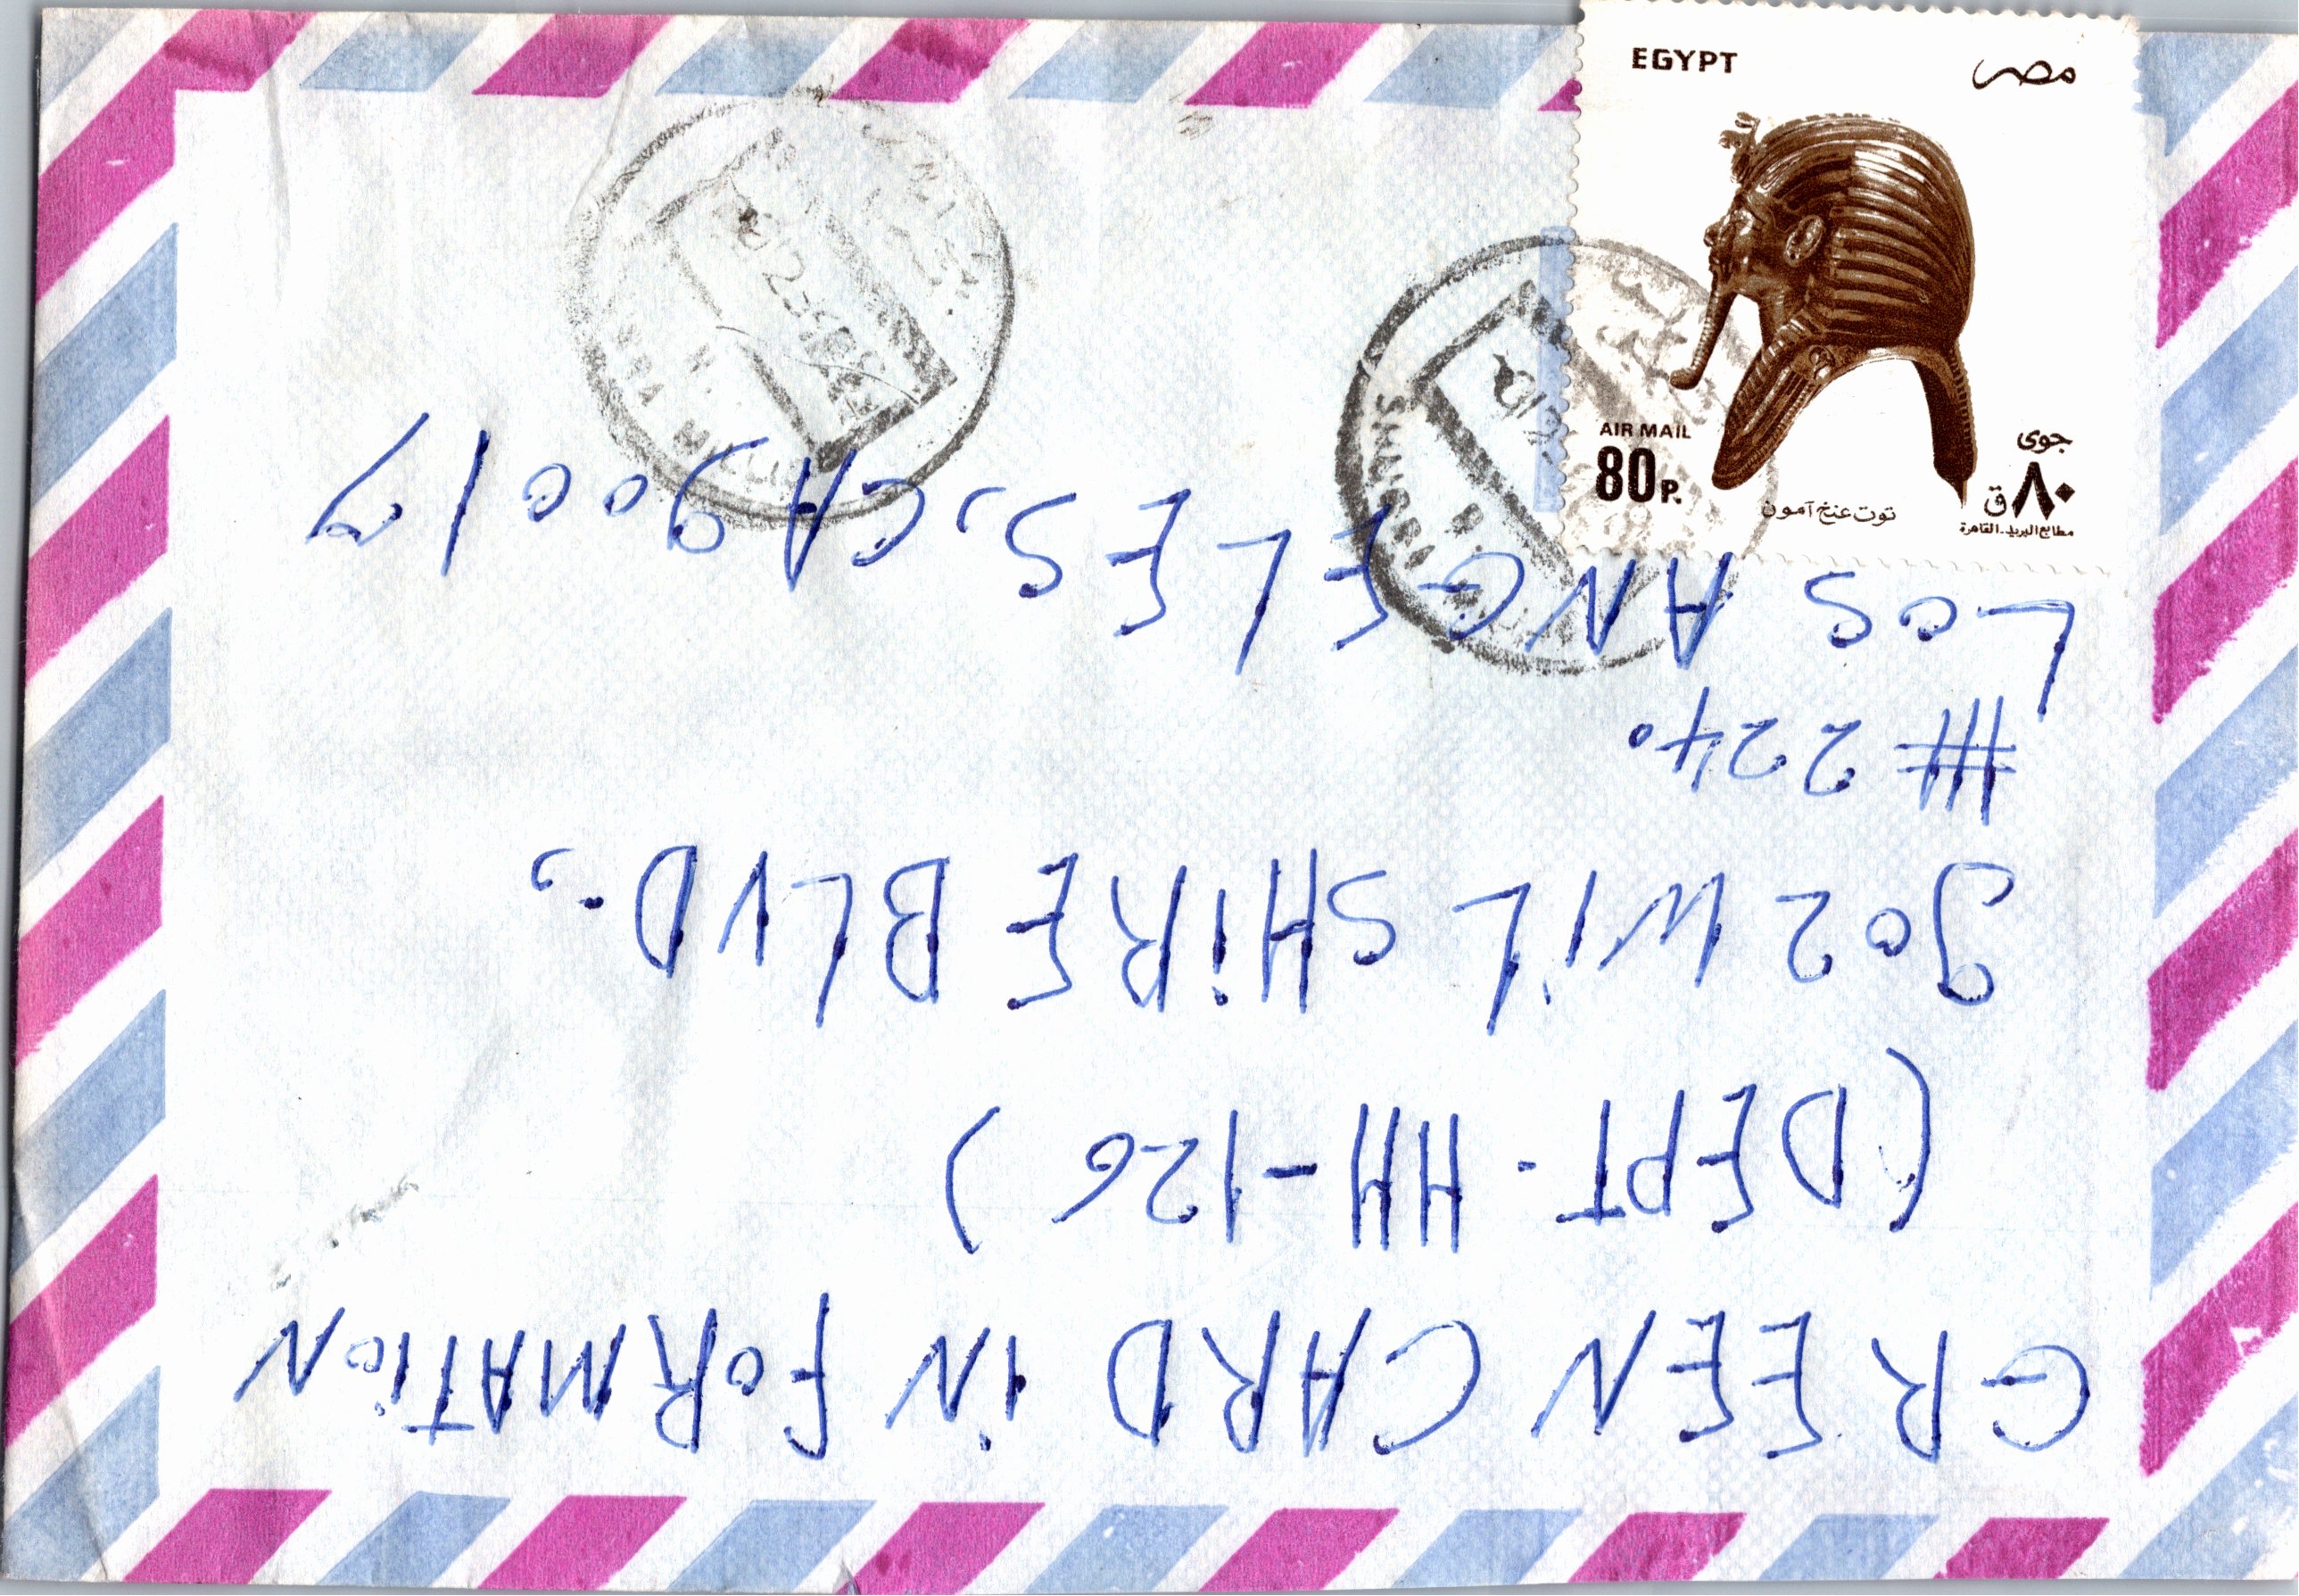 EGYPT مصر
AIR MAIL جوى
80 P. ٨٠ ق
توت عنخ آمون
مطابع البريد - القاهرة
GREEN CARD INFORMATION
(DEPT. HH-126)
902 WILSHIRE BLVD.,
# 2240
LOS ANGELES, CA 90017